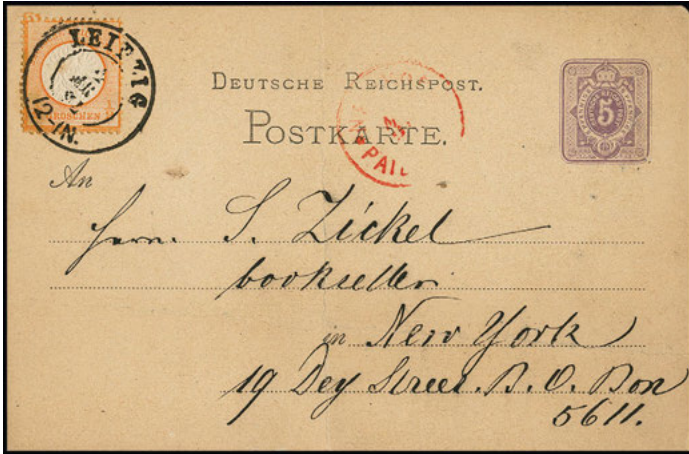 LEIPZIG
12-1N.
GROSCHEN
DEUTSCHE REICHSPOST.
POSTKARTE.
5
PAID
An
Herrn. S. Zickel
bookseller
in New York
19 Dey Street. B. O. Box
5611.